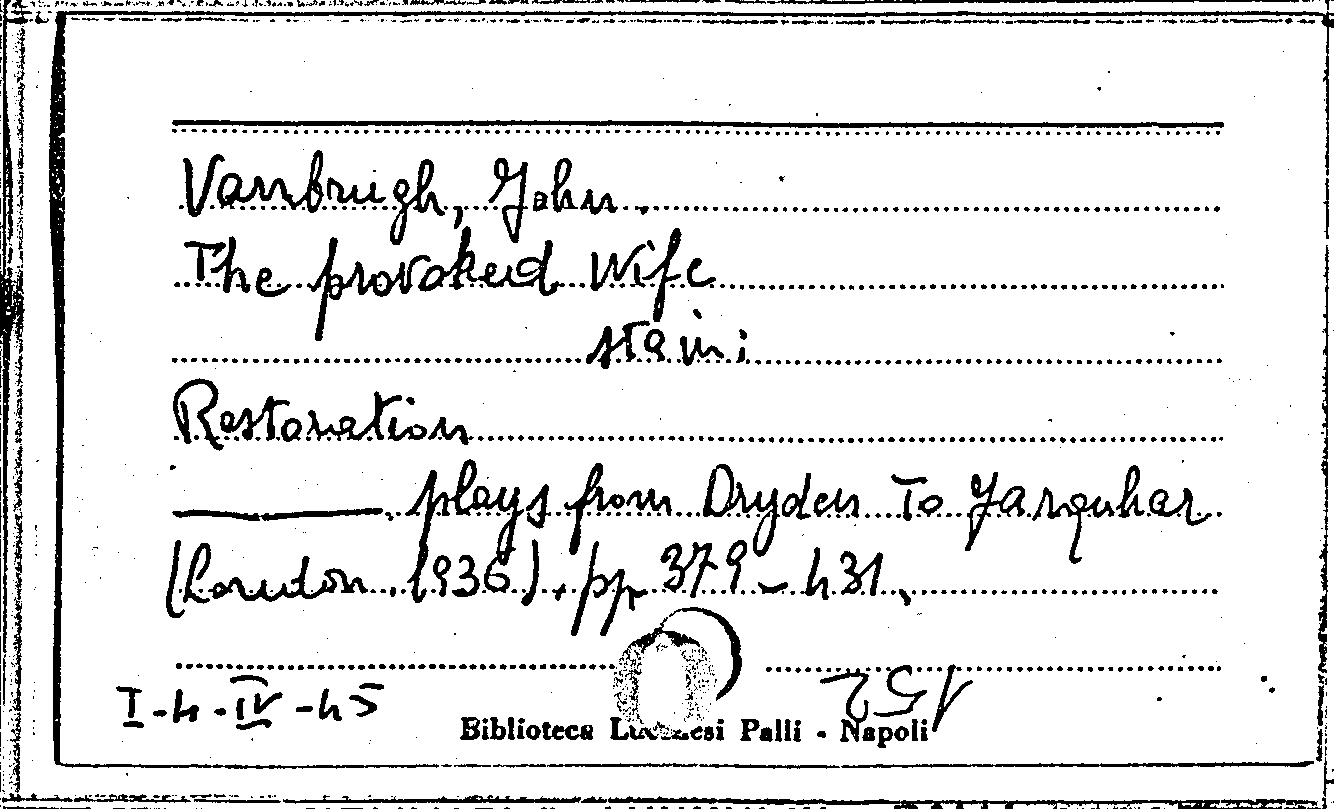 Vanbrugh, John.
The provoked Wife
sta in:
Restoration
———. plays from Dryden To Farquhar
(London. 1936). pp. 379-431.
I-4-IV-45
152
Biblioteca Lucchesi Palli - Napoli